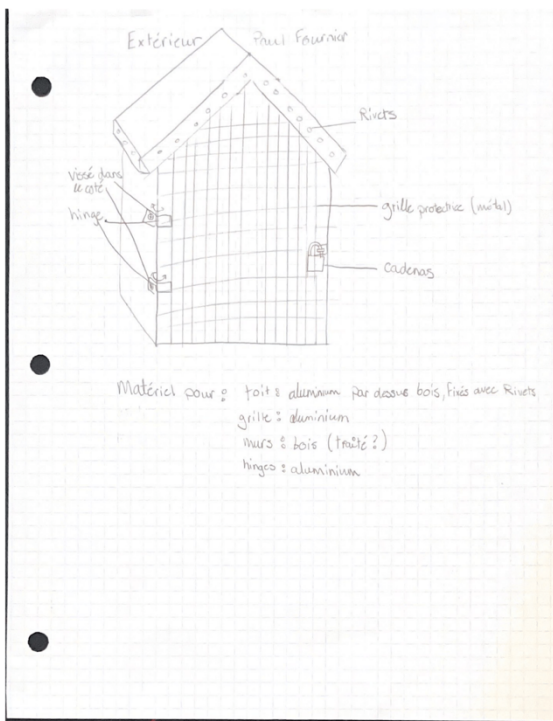 Extérieur Paul Fournier
Rivets
vissé dans
le coté
hinge
grille protective (métal)
cadenas
Matériel pour : toit : aluminum par dessus bois, fixés avec Rivets
grille : aluminium
murs : bois (traité?)
hinges : aluminium